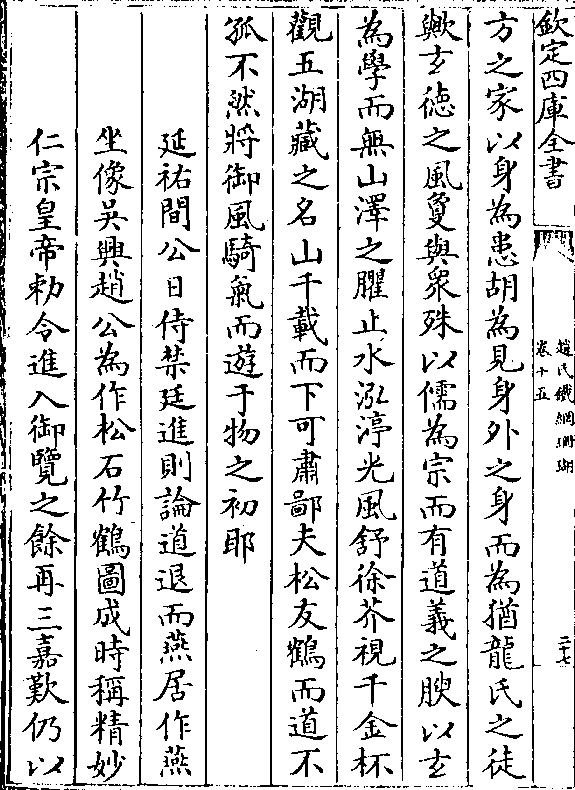 欽定四庫全書
趙氏鐵網珊瑚
卷十五
二十七
方之家以身為患胡為見身外之身而為猶龍氏之徒
歟玄徳之風敻與衆殊以儒為宗而有道義之腴以玄
為學而無山澤之臞止水泓渟光風舒徐芥視千金杯
觀五湖藏之名山千載而下可肅鄙夫松友鶴而道不
孤不然將御風騎氣而遊于物之初耶
延祐間公日侍禁廷進則論道退而燕居作燕
坐像吳興趙公為作松石竹鶴圖成時稱精妙
仁宗皇帝勅令進入御覽之餘再三嘉歎仍以